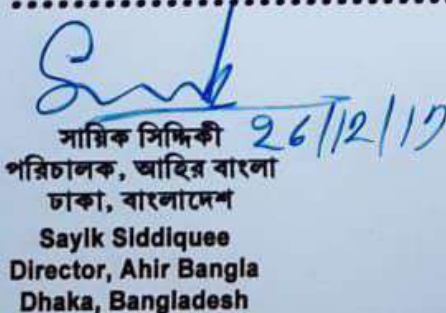 26/12/17
সায়িক সিদ্দিকী
পরিচালক, আহির বাংলা
ঢাকা, বাংলাদেশ
Sayik Siddiquee
Director, Ahir Bangla
Dhaka, Bangladesh